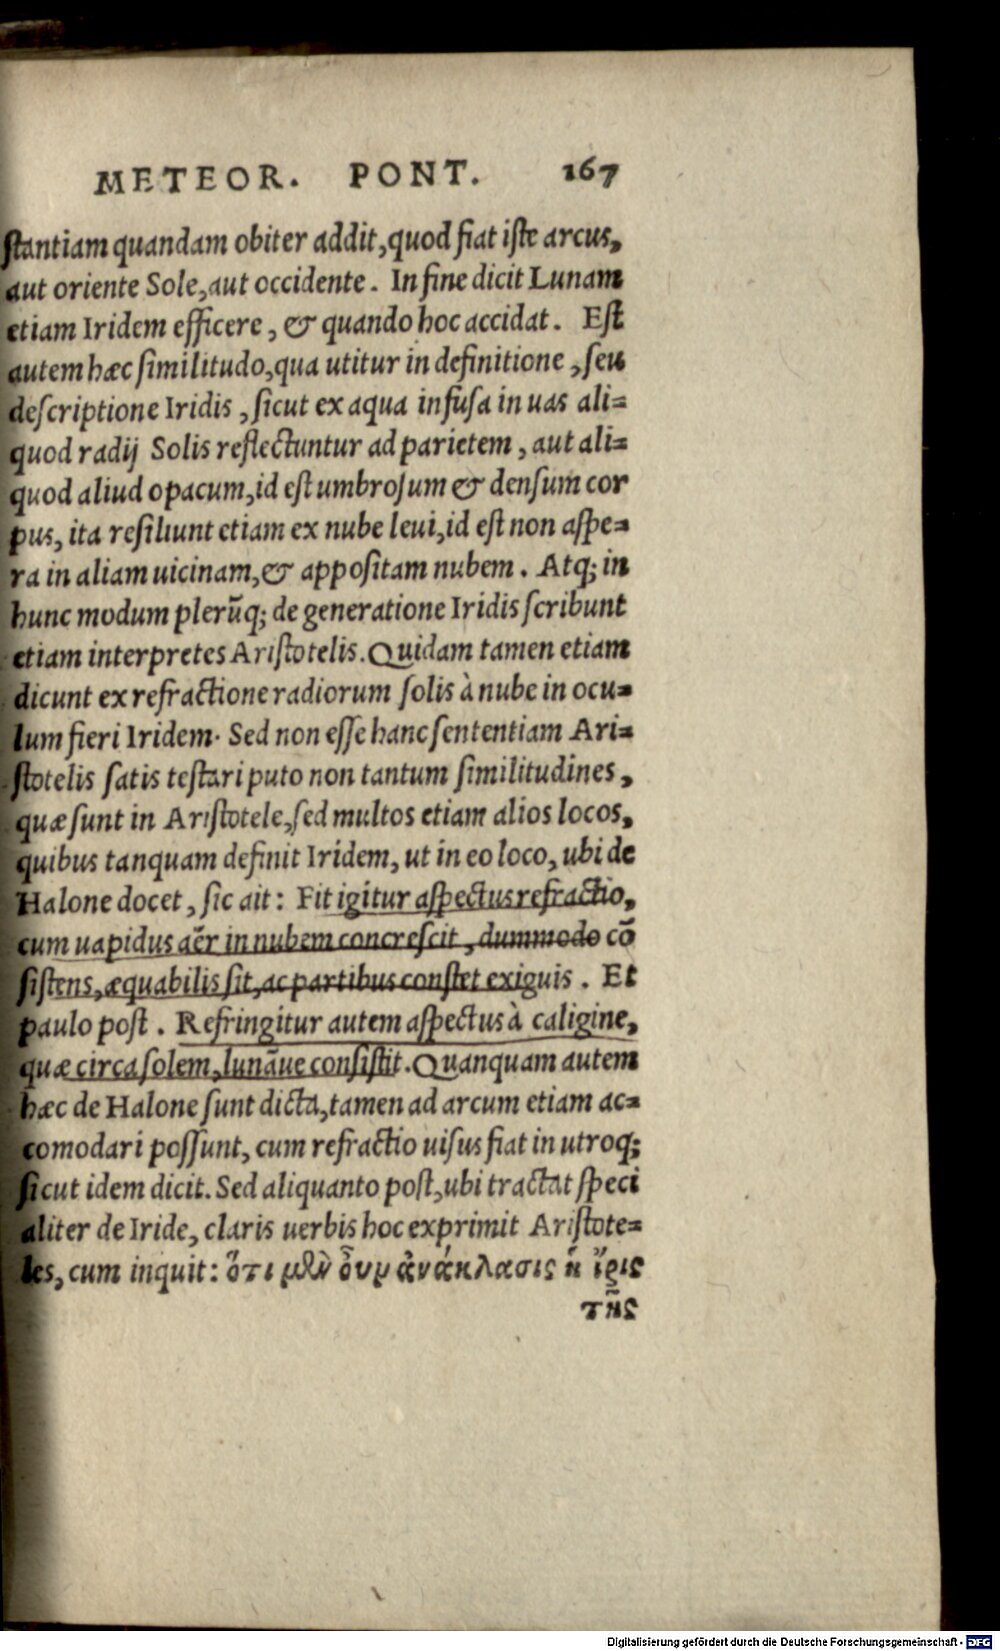 METEOR. PONT. 167
stantiam quandam obiter addit, quod fiat iste arcus,
aut oriente Sole, aut occidente. In fine dicit Lunam
etiam Iridem efficere, & quando hoc accidat. Est
autem hæc similitudo, qua utitur in definitione, seu
descriptione Iridis, sicut ex aqua infusa in uas ali=
quod radij Solis reflectuntur ad parietem, aut ali=
quod aliud opacum, id est umbrosum & densum cor
pus, ita resiliunt etiam ex nube leui, id est non aspe=
ra in aliam uicinam, & appositam nubem. Atq; in
hunc modum plerũq; de generatione Iridis scribunt
etiam interpretes Aristotelis. Quidam tamen etiam
dicunt ex refractione radiorum solis à nube in ocu=
lum fieri Iridem. Sed non esse hanc sententiam Ari=
stotelis satis testari puto non tantum similitudines,
quæ sunt in Aristotele, sed multos etiam alios locos,
quibus tanquam definit Iridem, ut in eo loco, ubi de
Halone docet, sic ait: Fit igitur aspectus refractio,
cum uapidus aër in nubem concrescit, dummodo cõ
sistens, æquabilis sit, ac partibus constet exiguis. Et
paulo post. Refringitur autem aspectus à caligine,
quæ circa solem, lunãue consistit. Quanquam autem
hæc de Halone sunt dicta, tamen ad arcum etiam ac=
comodari possunt, cum refractio uisus fiat in utroq;
sicut idem dicit. Sed aliquanto post, ubi tractat speci
aliter de Iride, claris uerbis hoc exprimit Aristote=
les, cum inquit: ὅτι μὲν οὖν ἀνάκλασις ἡ ἶρις
τῆς
Digitalisierung gefördert durch die Deutsche Forschungsgemeinschaft - DFG